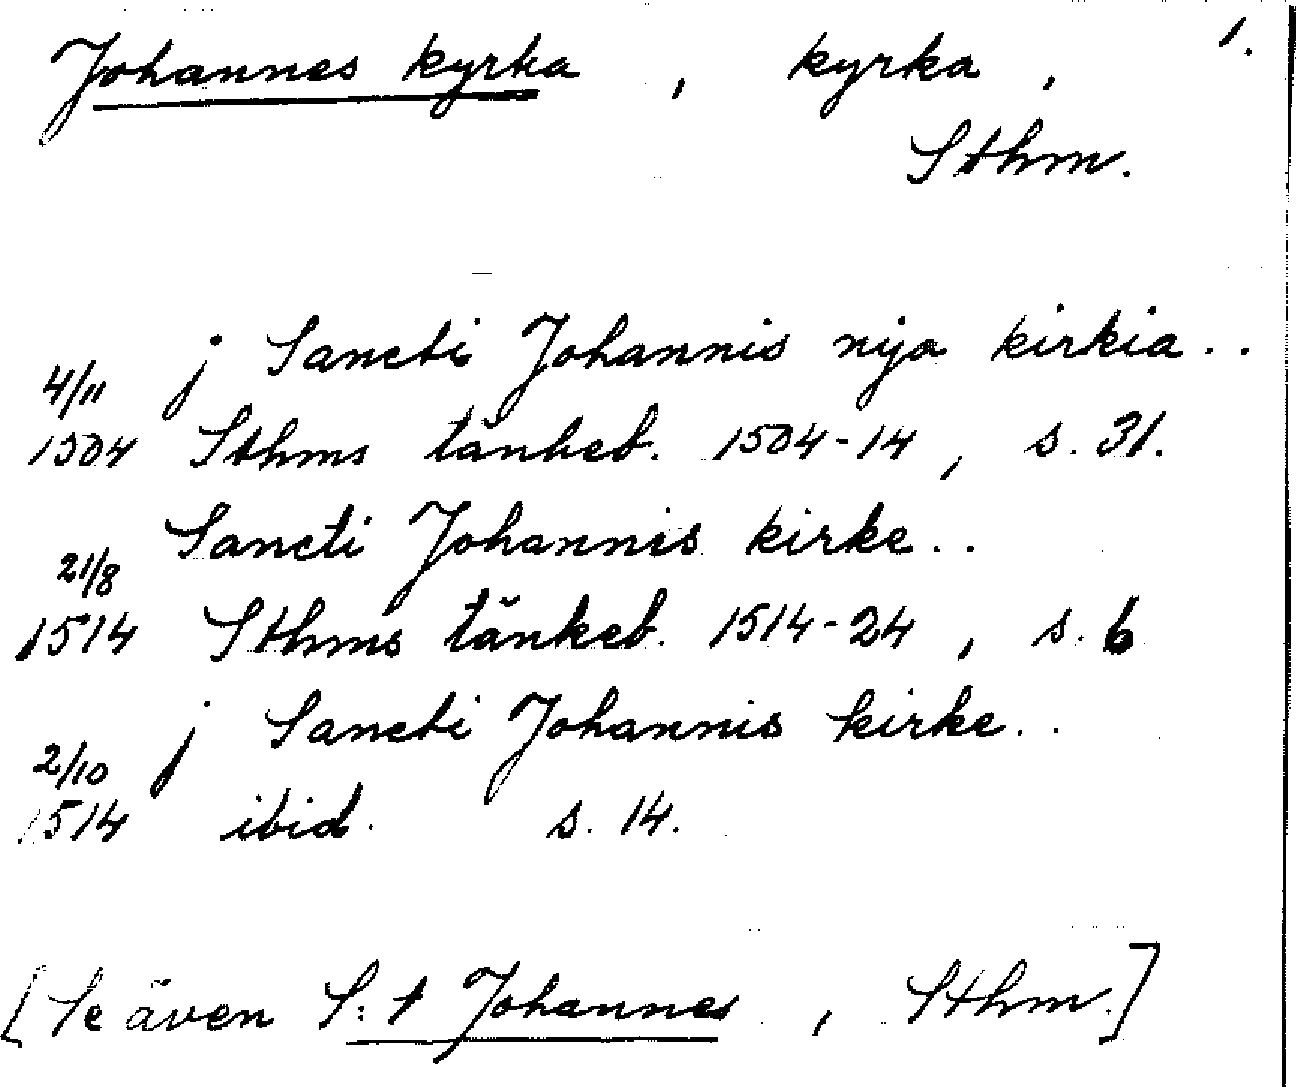 Johannes kyrka, kyrka, 1.
Sthm.
4/11 j Sancti Johannis nya kirkia..
1504 Sthms tänkeb. 1504-14, s. 31.
21/8 Sancti Johannis kirke..
1514 Sthms tänkeb. 1514-24, s. 6
2/10 j Sancti Johannis kirke..
1514 ibid. s. 14.
[Se även S:t Johannes, Sthm.]